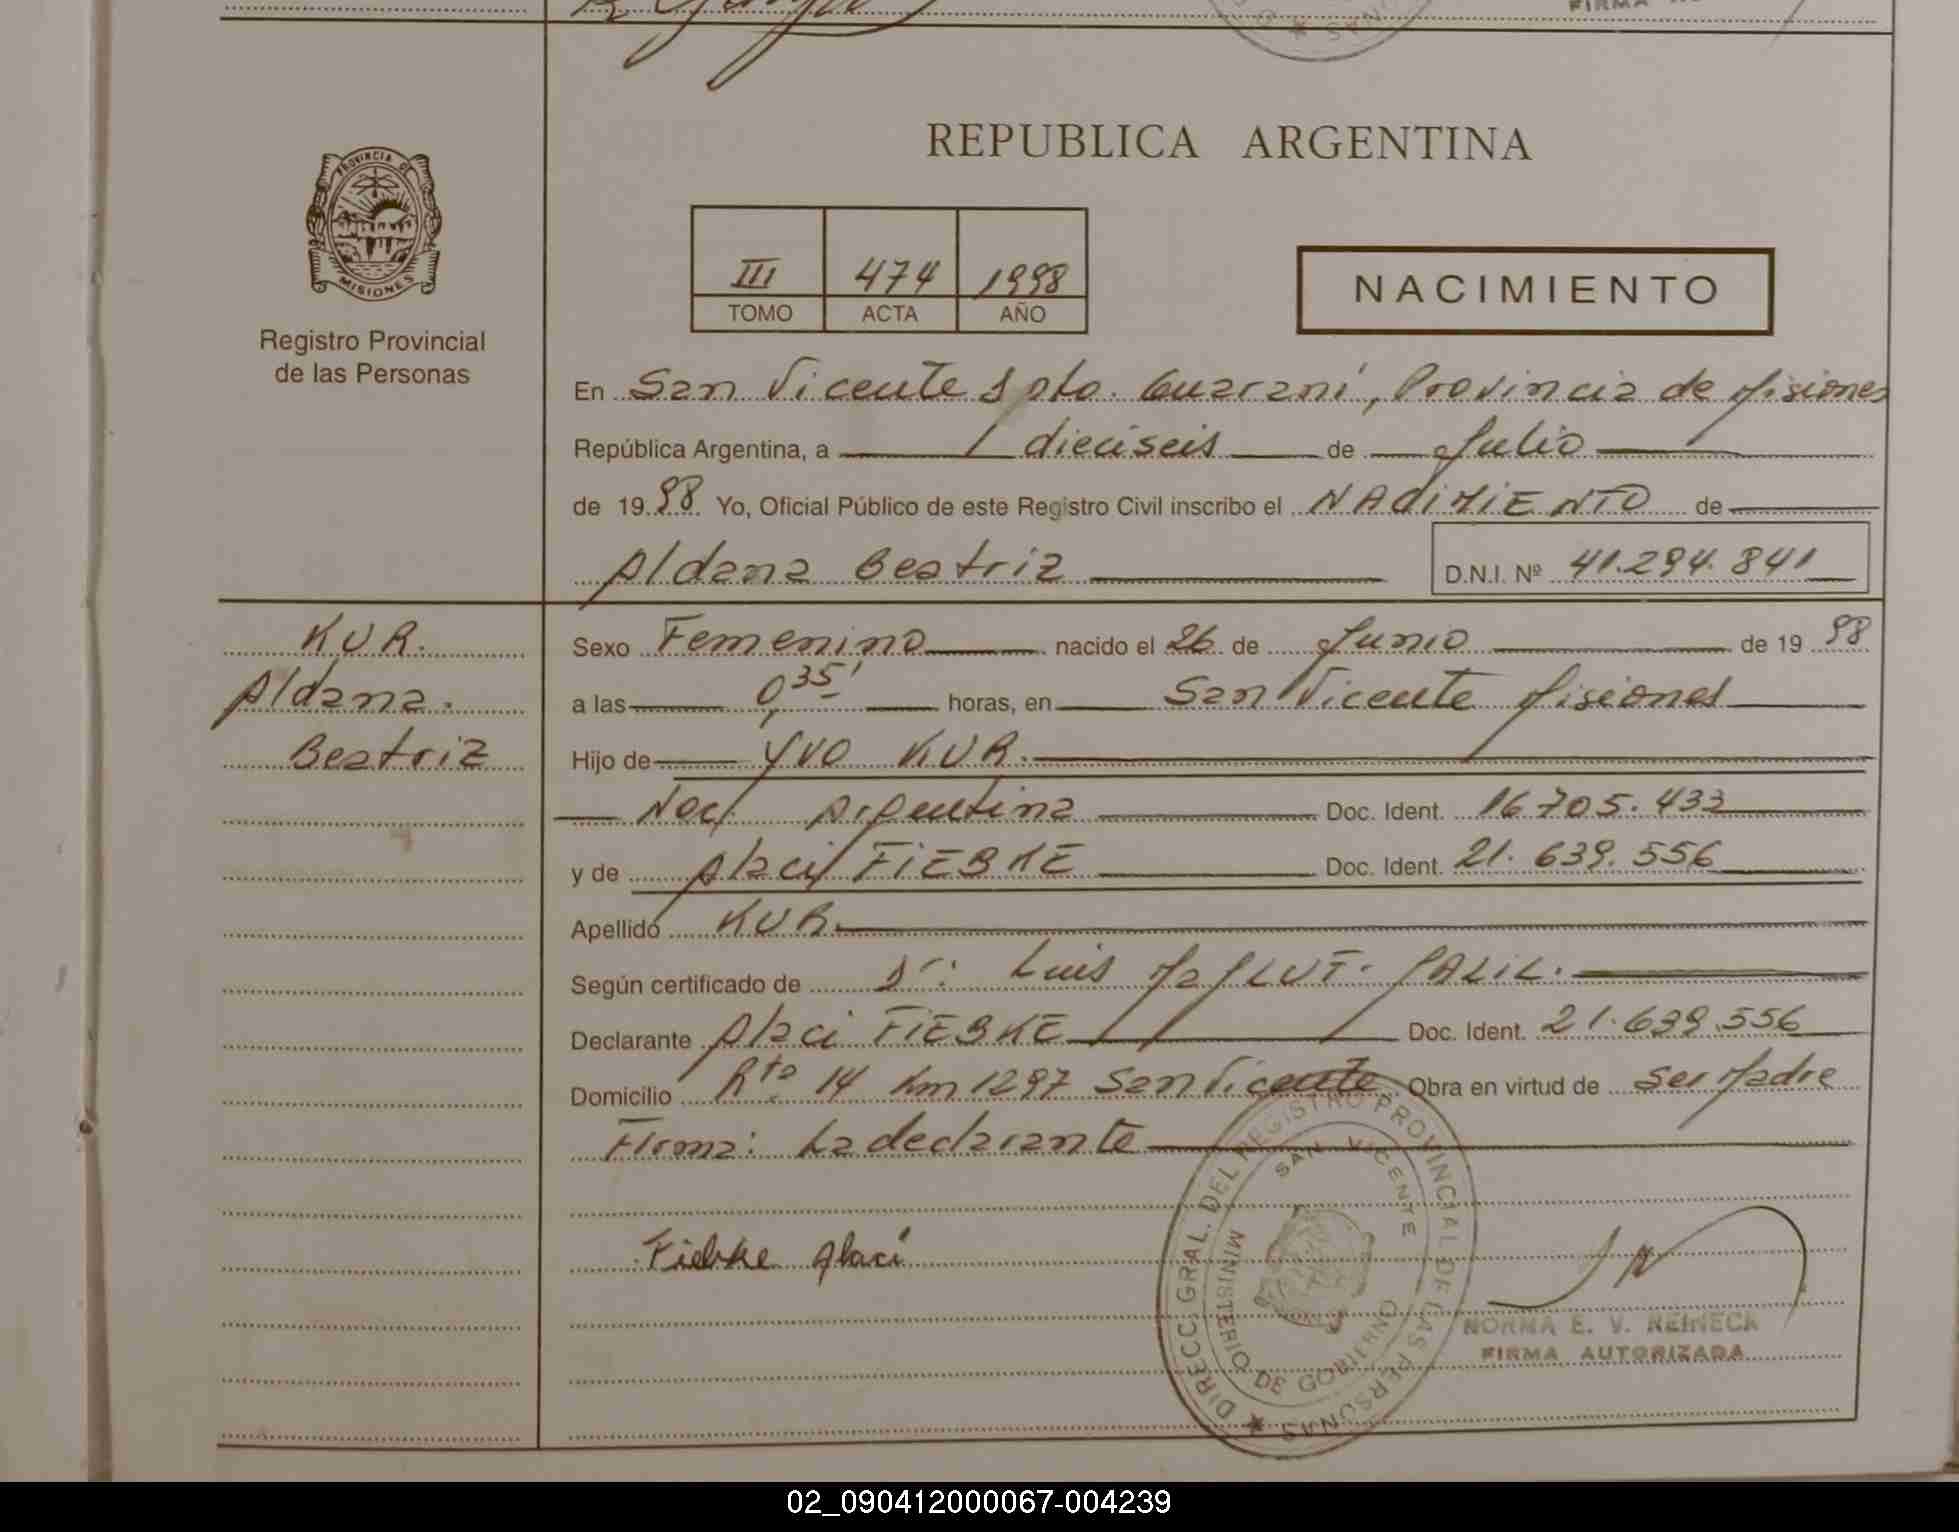 FIRMA
PROVINCIA DE
MISIONES
Registro Provincial
de las Personas
REPUBLICA ARGENTINA
III 474 1998
TOMO ACTA AÑO
NACIMIENTO
En San Vicente Dpto. Guaraní, Provincia de Misiones
República Argentina, a dieciseis de Julio
de 1998 Yo, Oficial Público de este Registro Civil inscribo el NACIMIENTO de
Aldana Beatriz D.N.I. Nº 41.294.841
KUR.
Aldana.
Beatriz
Sexo Femenino nacido el 26 de Junio de 1998
a las 0,35' horas, en San Vicente Misiones
Hijo de YVO KUR.
Nac. Argentina Doc. Ident. 16705.433
y de Alaci FIEBKE Doc. Ident. 21.639.556
Apellido KUR
Según certificado de Dr: Luis
Declarante Alaci FIEBKE Doc. Ident. 21.639.556
Domicilio Rta 14 Km 1297 San Vicente Obra en virtud de ser Madre
Firma: La declarante
Fiebke Alaci
DIRECC. GRAL. DEL REGISTRO PROVINCIAL DE LAS PERSONAS
SAN VICENTE
MINISTERIO DE GOBIERNO
NORMA E. V. REINECK
FIRMA AUTORIZADA
02_090412000067-004239